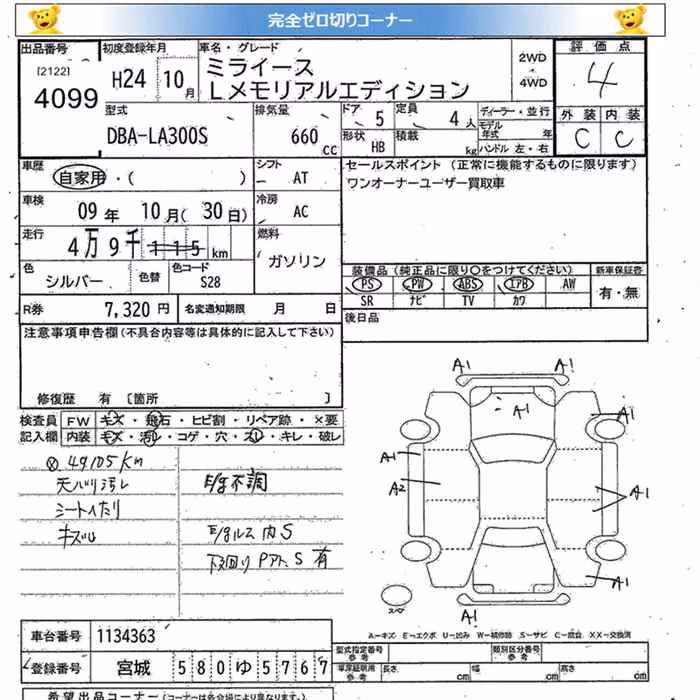 完全ゼロ切りコーナー
出品番号
[2122]
4099
初度登録年月
H24 10月
車名・グレード
ミライース
Lメモリアルエディション
2WD
4WD
評価点
4
外装 内装
C C
型式
DBA-LA300S
排気量
660 CC
ドア 5
形状 HB
定員 4人
積載 kg
ディーラー・並行
モデル年式 年
ハンドル 左・右
車歴
自家用・( )
シフト
AT
車検
09年 10月(30日)
冷房
AC
走行
4万9千115 km
燃料
ガソリン
色
シルバー
色替
色コード
S28
セールスポイント (正常に機能するものに限ります)
ワンオーナーユーザー買取車
装備品(純正品に限り○をつけてください)
PS PW ABS エアB AW
SR ナビ TV カワ
新車保証書
有・無
R券 7,320円
名変通知期限 月 日
後日品
注意事項申告欄(不具合内容等は具体的に記入して下さい)
修復歴 有 [箇所 ]
検査員
記入欄
FW キズ・飛石・ヒビ割・リペア跡・×要
内装 キズ・汚れ・コゲ・穴・スレ・キレ・破レ
49105km
天バリ汚レ
シートヘタリ
キズ
E/g不調
E/gルス内S
下廻りPアト、S有
A1 A1
A1
A1
A1
A2
A1
A1
A1
スペア
A…キズ E…エクボ U…凹み W…補修跡 S…サビ C…腐食 XX…交換済
車台番号 1134363
登録番号 宮城 580ゆ5767
型式指定番号
参考
類別区分番号
参考
長さ cm 幅 cm 高さ cm
希望出品コーナー(コーナーは各会場により異なります。)